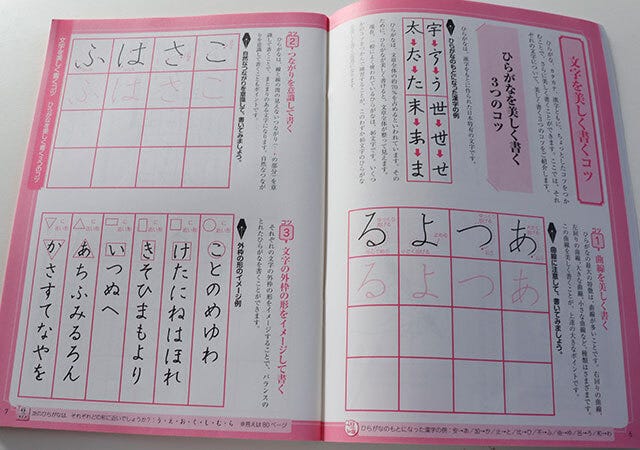 文字を美しく書くコツ
ひらがな、カタカナ、漢字ともに、ちょっとしたコツをつか
むことで、さらに美しく書くことができます。ここでは、それ
ぞれの文字について、美しく書く3つのコツをご紹介します。
ひらがなを美しく書く
3つのコツ
ひらがなは、漢字をもとに作られた日本特有の文字です。
ひらがなのもとになった漢字の例
世→せ→せ
末→ま→ま
宇→う→う
太→た→た
コツ1 曲線を美しく書く
ひらがなの最大の特徴は、曲線が多いことです。右回りの曲線、
左回りの曲線、大きな曲線、小さな曲線など、種類はさまざまです。
この曲線を美しく書くことが、上達の大きなポイントです。
曲線に注意して、書いてみましょう。
あ
つ
よ
る
あ
つ
よ
る
ひらがなのもとになった漢字の例：安→あ/加→か/止→と/比→ひ/不→ふ/由→ゆ/呂→ろ/和→わ
6
コツ2 つながりを意識して書く
自然なつながりを意識して、書いてみましょう。
こ
さ
は
ふ
こ
さ
は
ふ
コツ3 文字の外枠の形をイメージして書く
それぞれの文字の外枠の形をイメージすることで、バランスの
とれたひらがなを書くことができます。
外枠の形のイメージ例
○に近い形
ことのめゆわ
けたにねはほれ
きそひまもより
いつぬへ
あちふみるろん
かさすてなやを
次のひらがなは、それぞれどの形に近いでしょうか？：う・え・お・く・し・む・ら ※答えは80ページ
7
文字を美しく書くコツ
ひらがなを美しく書く3つのコツ